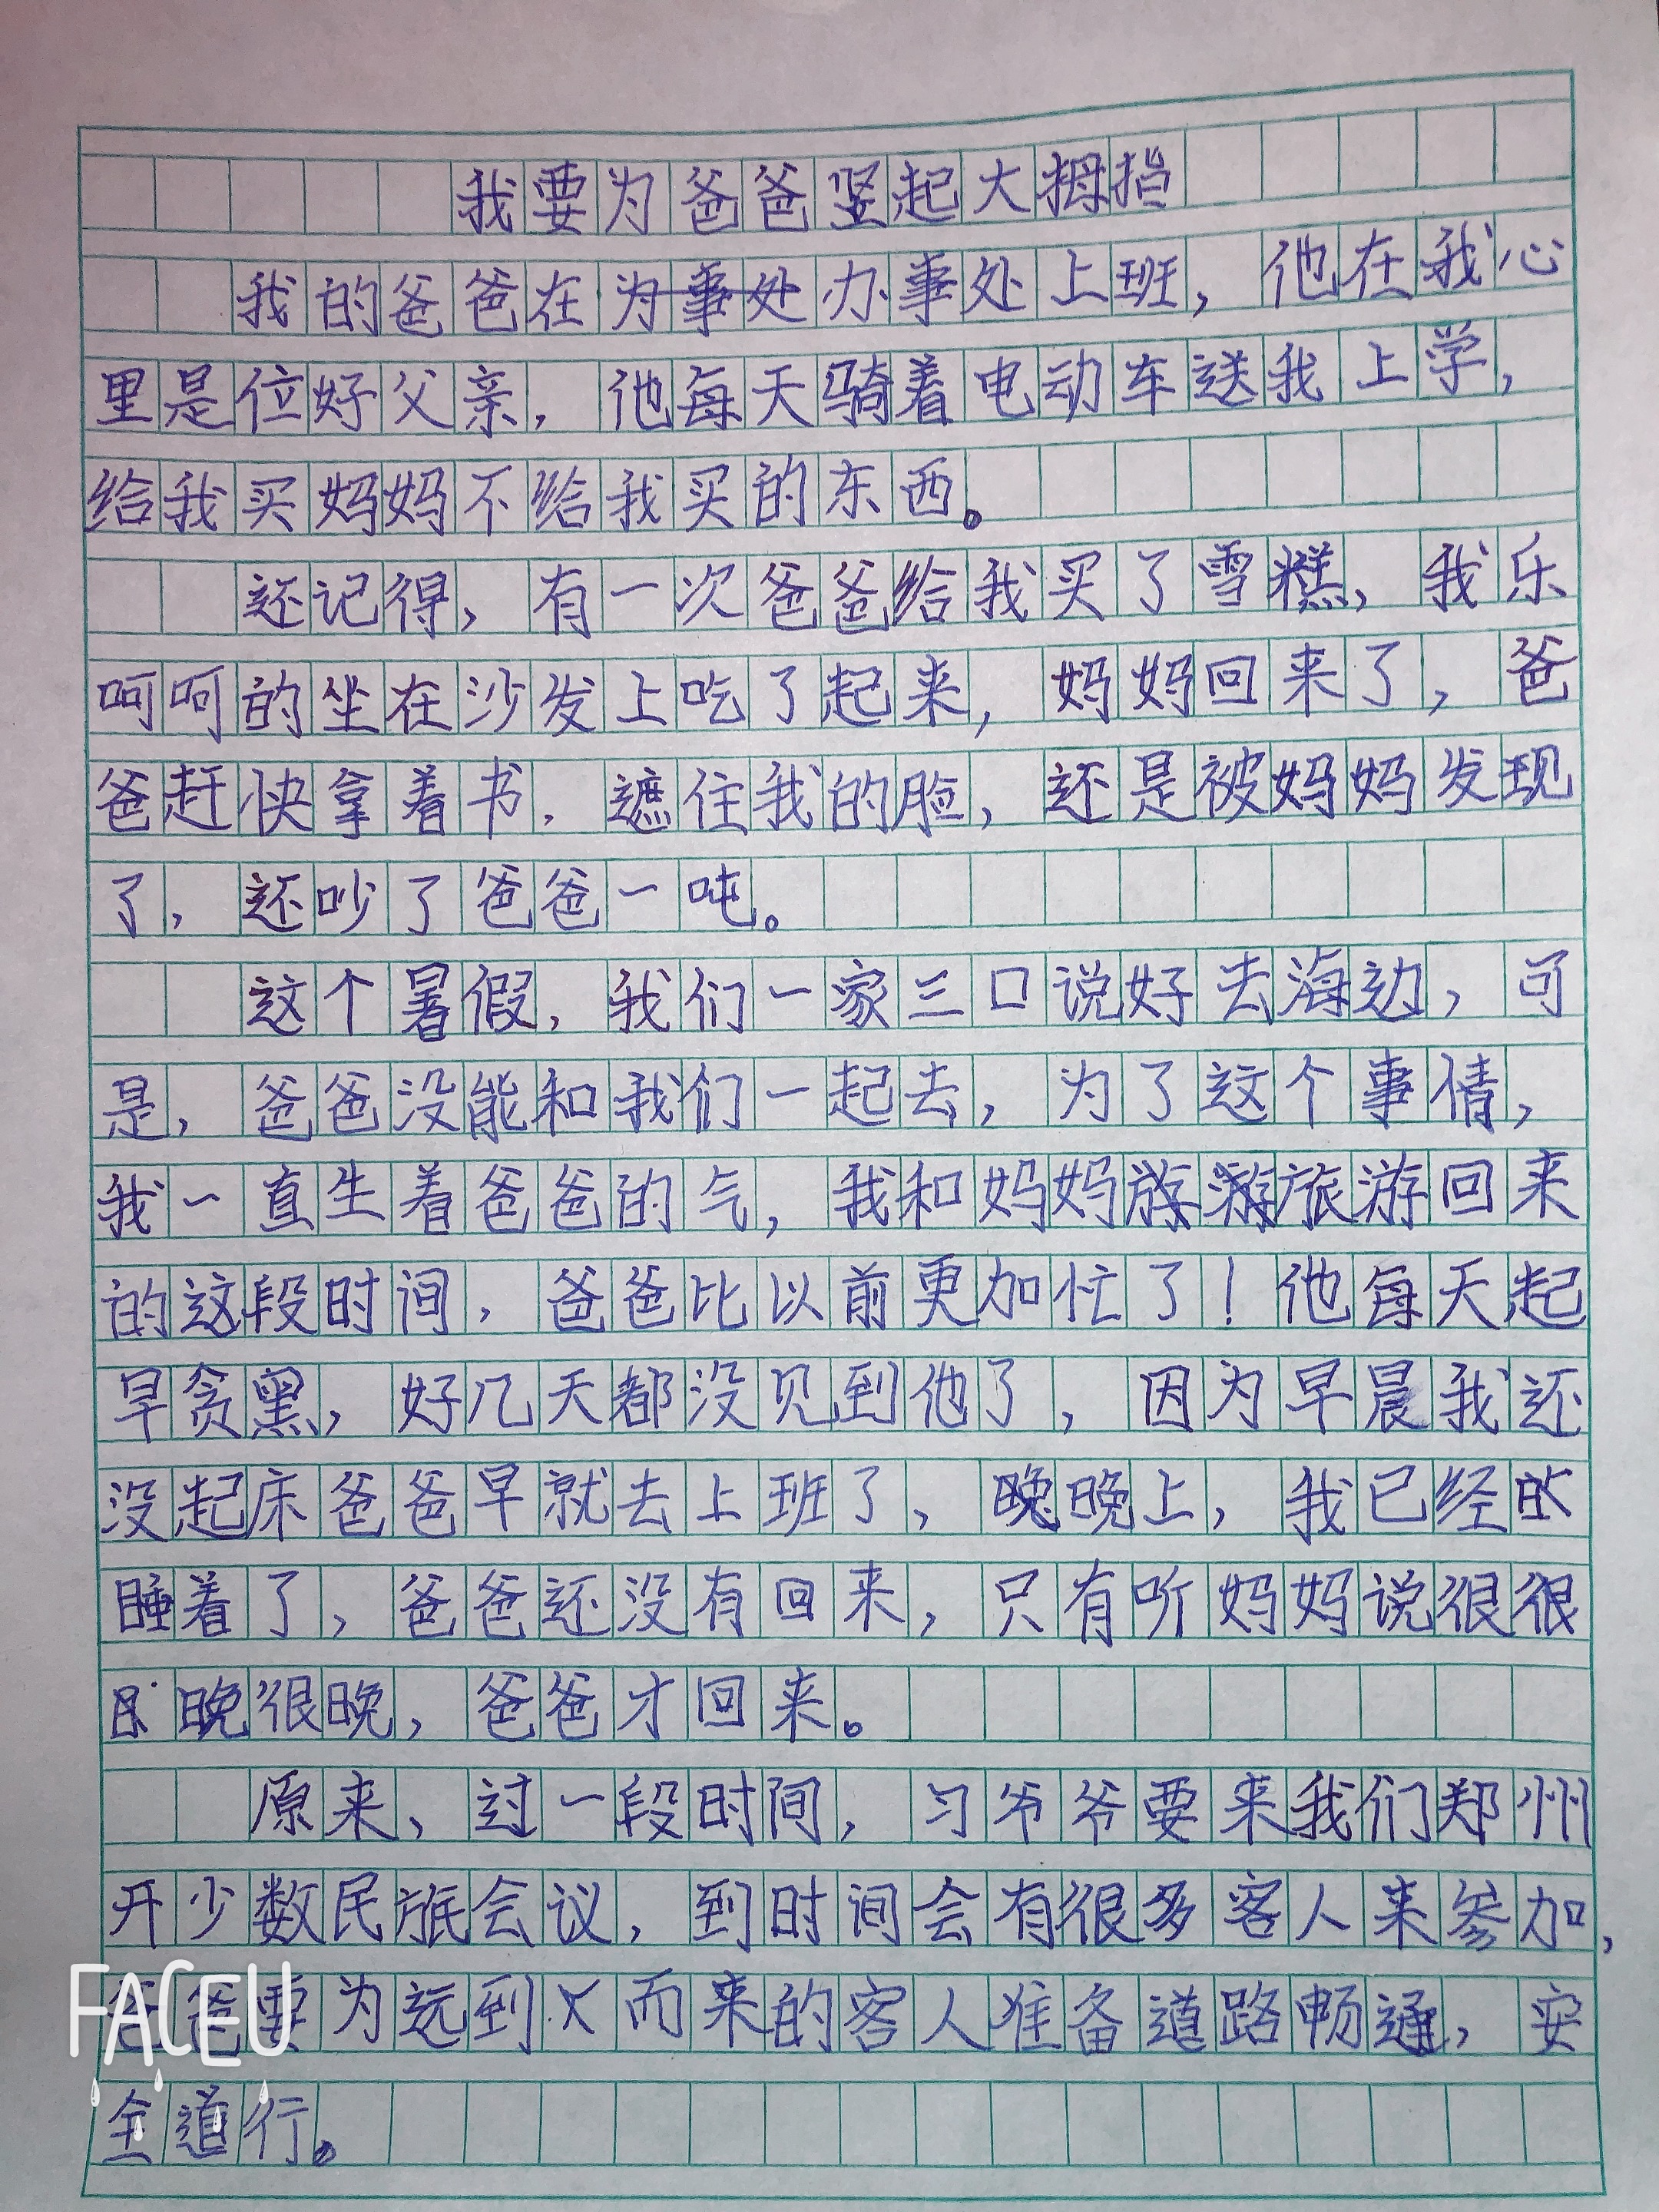 我要为爸爸竖起大拇指
我的爸爸在为事处办事处上班，他在我心
里是位好父亲，他每天骑着电动车送我上学，
给我买妈妈不给我买的东西。
还记得，有一次爸爸给我买了雪糕，我乐
呵呵的坐在沙发上吃了起来，妈妈回来了，爸
爸赶快拿着书，遮住我的脸，还是被妈妈发现
了，还吵了爸爸一吨。
这个暑假，我们一家三口说好去海边，可
是，爸爸没能和我们一起去，为了这个事情，
我一直生着爸爸的气，我和妈妈旅游回来
的这段时间，爸爸比以前更加忙了！他每天起
早贪黑，好几天都没见到他了，因为早晨我还
没起床爸爸早就去上班了，晚晚上，我已经
睡着了，爸爸还没有回来，只有听妈妈说很很
晚很晚，爸爸才回来。
原来、过一段时间，习爷爷要来我们郑州
开少数民族会议，到时间会有很多客人来参加，
爸爸要为远到而来的客人准备道路畅通，安
全道行。
FACEU